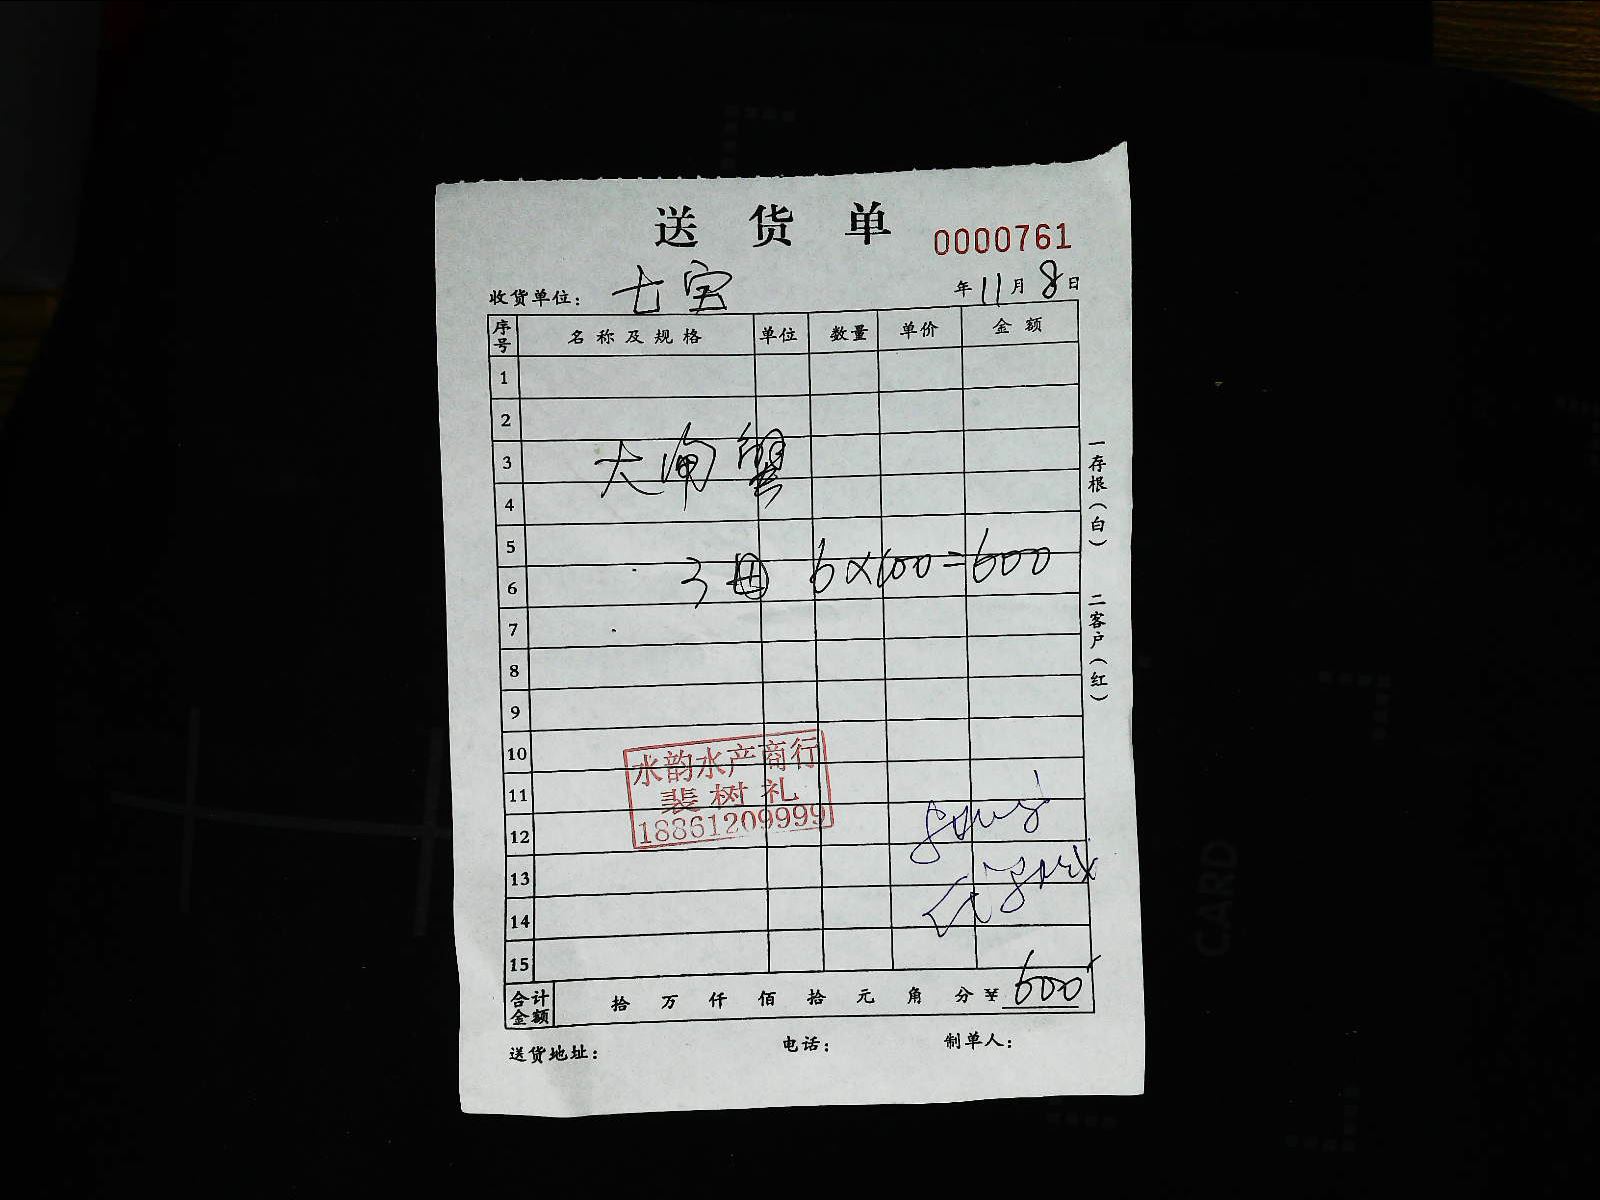 送货单
0000761
收货单位: 七宝
年11月8日
序号 名称及规格 单位 数量 单价 金额
1
2
3 大闸蟹
4
5
6 3母 6×100=600
7
8
9
10
11
12
13
14
15
水韵水产商行
裴树礼
18861209999
合计金额 拾 万 仟 佰 拾 元 角 分 ¥ 600
送货地址: 电话: 制单人:
一存根(白) 二客户(红)
CARD